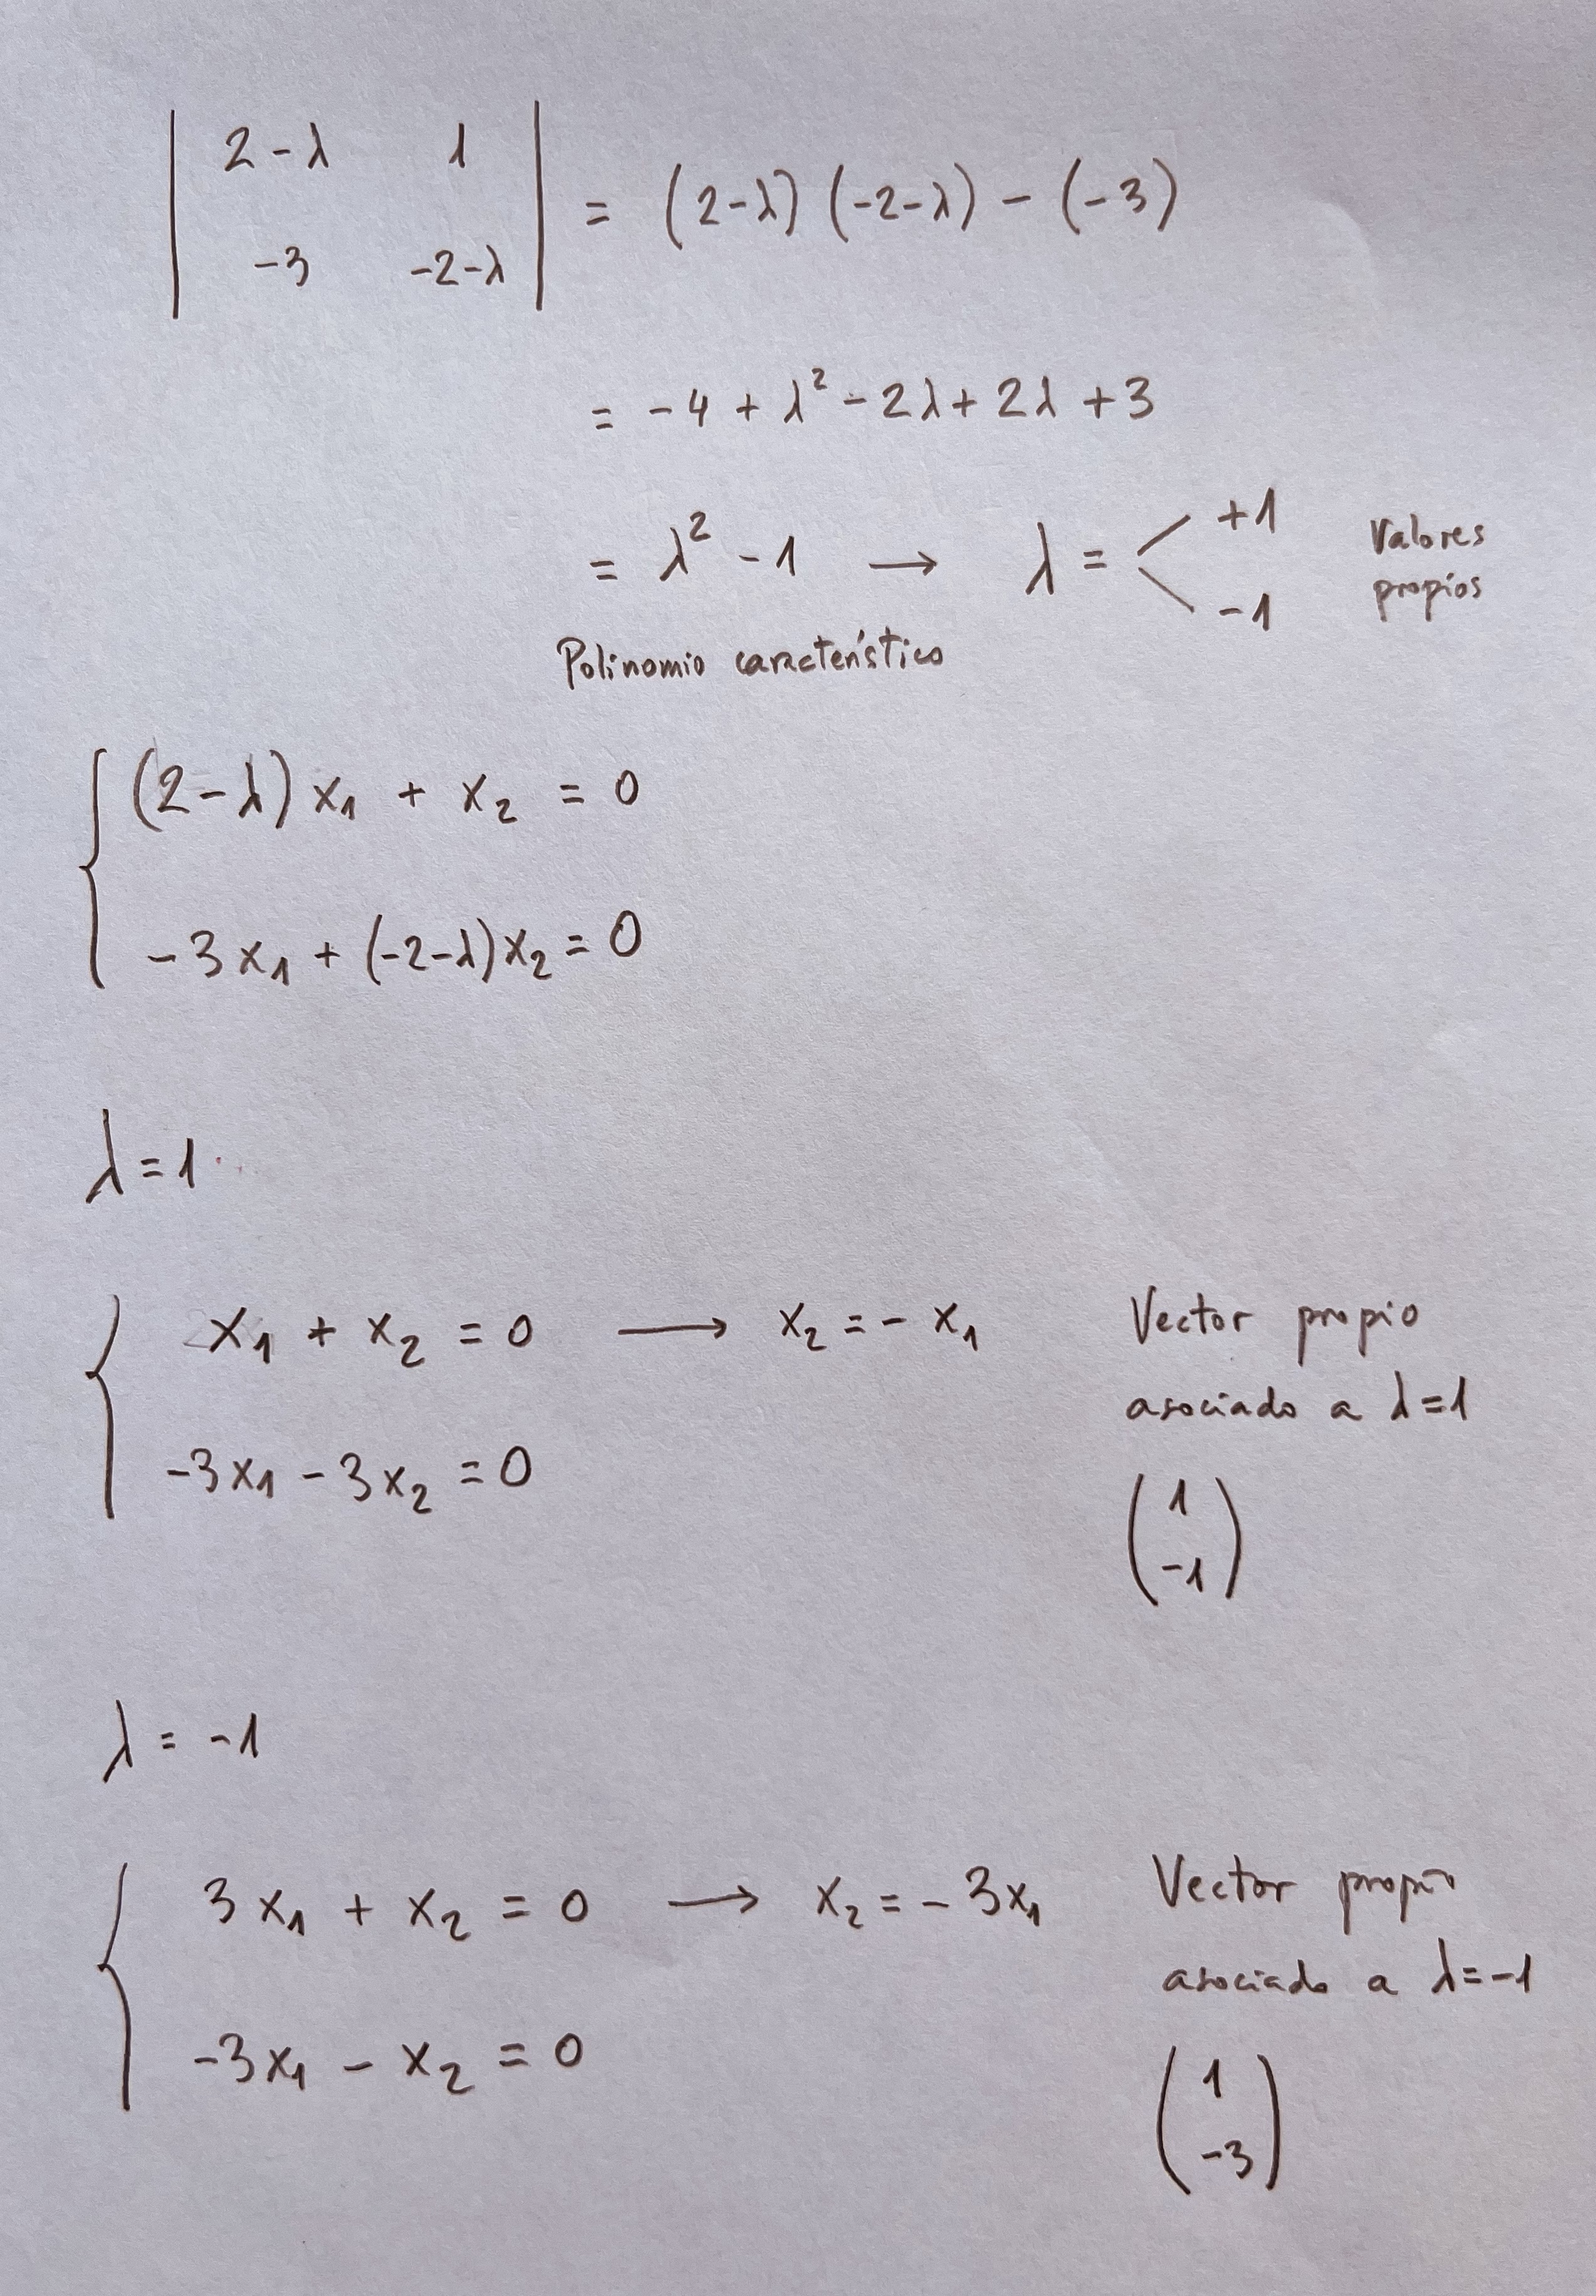 | 2-λ 1 | = (2-λ) (-2-λ) - (-3)
| -3 -2-λ |
= -4 + λ² - 2λ + 2λ + 3
= λ² - 1 → λ = < +1
-1
Valores
propios
Polinomio característico
{ (2-λ) x₁ + x₂ = 0
-3x₁ + (-2-λ)x₂ = 0
λ = 1
{ x₁ + x₂ = 0 → x₂ = - x₁
-3x₁ - 3x₂ = 0
Vector propio
asociado a λ=1
( 1
-1 )
λ = -1
{ 3x₁ + x₂ = 0 → x₂ = - 3x₁
-3x₁ - x₂ = 0
Vector propio
asociado a λ=-1
( 1
-3 )